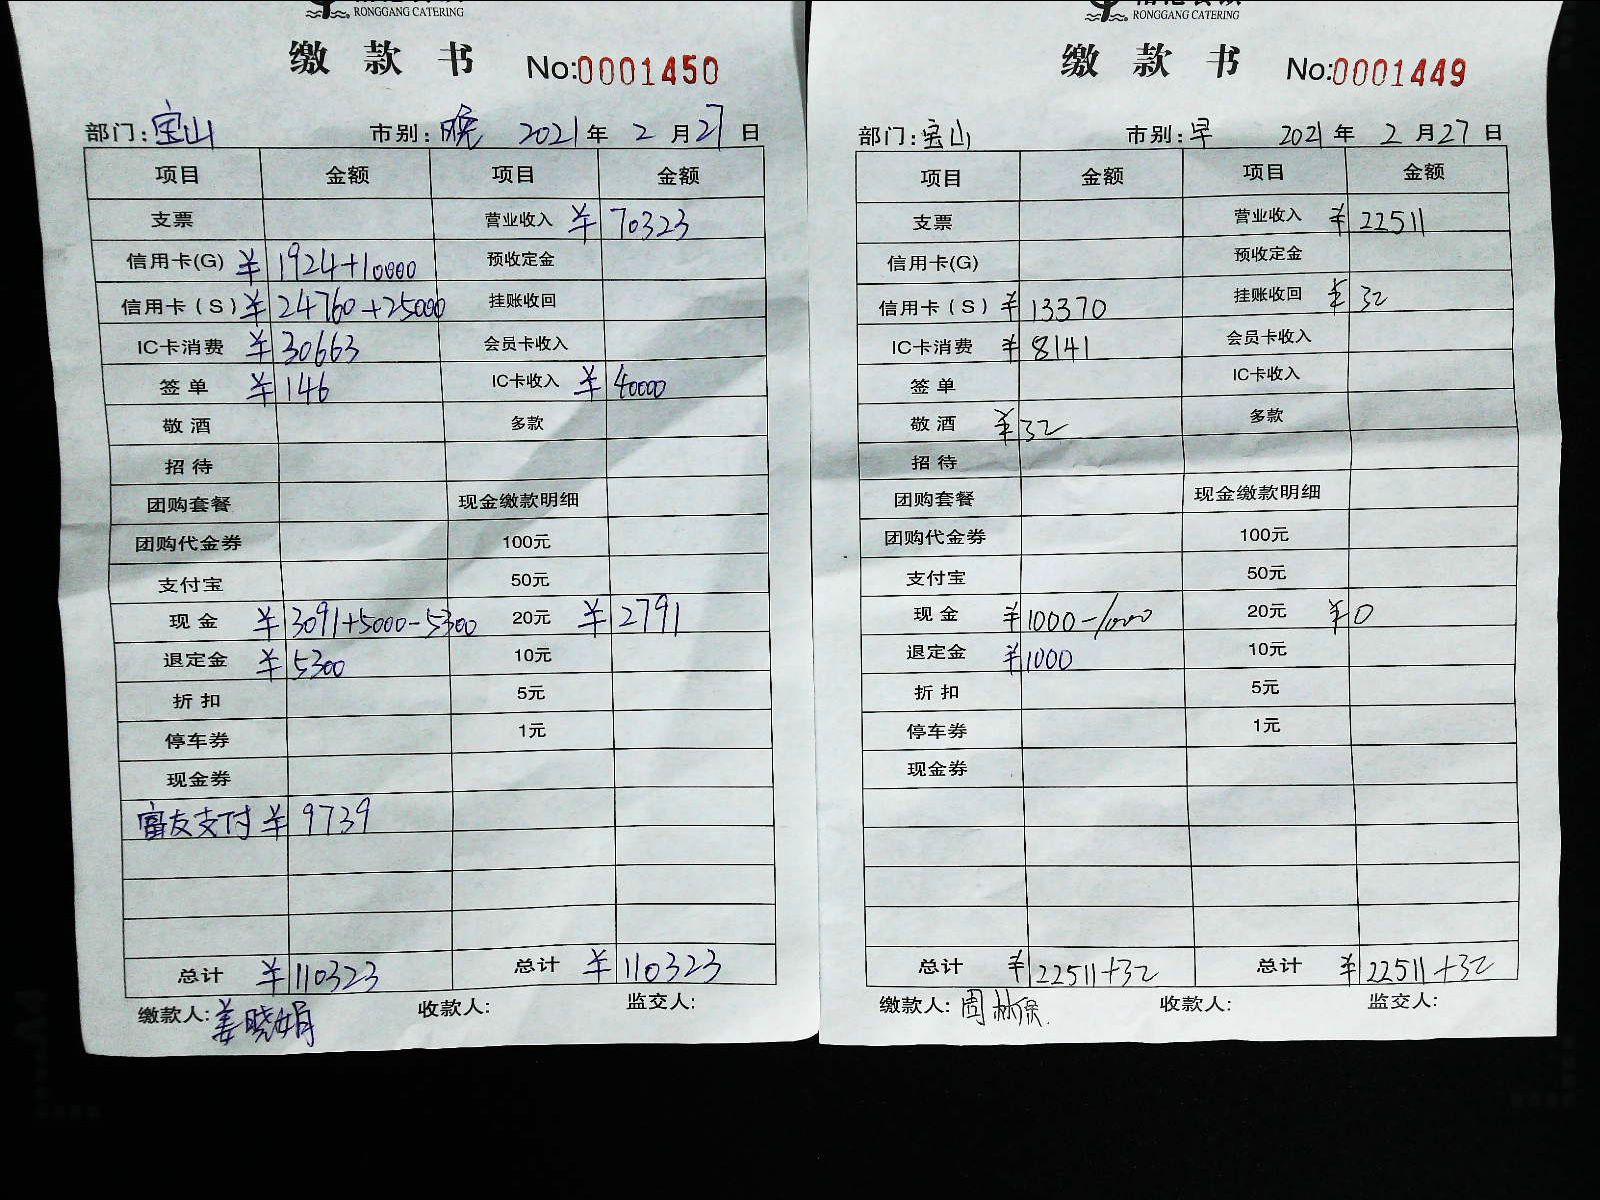 RONGGANG CATERING
缴款书 No:0001450
部门:宝山 市别:晚 2021年2月27日
项目 金额 项目 金额
支票 营业收入 ¥70323
信用卡(G) ¥1924+10000 预收定金
信用卡(S) ¥24760+25000 挂账收回
IC卡消费 ¥30663 会员卡收入
签单 ¥146 IC卡收入 ¥40000
敬酒 多款
招待
团购套餐 现金缴款明细
团购代金券 100元
支付宝 50元
现金 ¥3091+5000-5300 20元 ¥2791
退定金 ¥5300 10元
折扣 5元
停车券 1元
现金券
富友支付 ¥9739
总计 ¥110323 总计 ¥110323
缴款人:姜晓娟 收款人: 监交人:
RONGGANG CATERING
缴款书 No:0001449
部门:宝山 市别:早 2021年2月27日
项目 金额 项目 金额
支票 营业收入 ¥22511
信用卡(G) 预收定金
信用卡(S) ¥13370 挂账收回 ¥32
IC卡消费 ¥8141 会员卡收入
签单 IC卡收入
敬酒 ¥32 多款
招待
团购套餐 现金缴款明细
团购代金券 100元
支付宝 50元
现金 ¥1000-1000 20元 ¥0
退定金 ¥1000 10元
折扣 5元
停车券 1元
现金券
总计 ¥22511+32 总计 ¥22511+32
缴款人:周林保 收款人: 监交人: